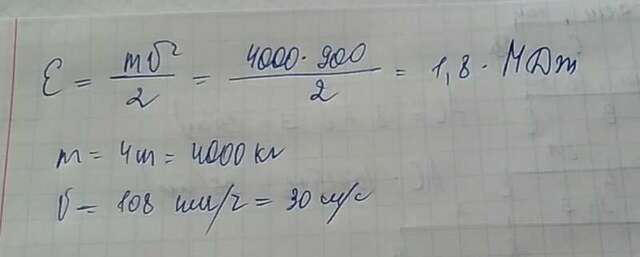 E = mv²/2 = 4000·900/2 = 1,8·МДж
m = 4т = 4000 кг
v = 108 км/ч = 30 м/с